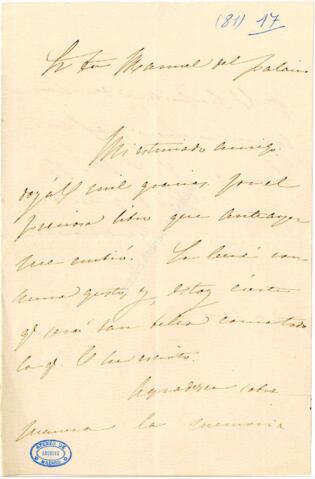 (81) 17
Sr Dn Manuel del Palacio
Mi estimado amigo:
doy á V. mil gracias por el
precioso libro que anteayer
me envió. Lo leeré con
sumo gusto, y estoy cierto
q. será tan bello como todo
lo q. V. ha escrito.
Agradezco sobre
manera la memoria
ATENEO DE
MADRID